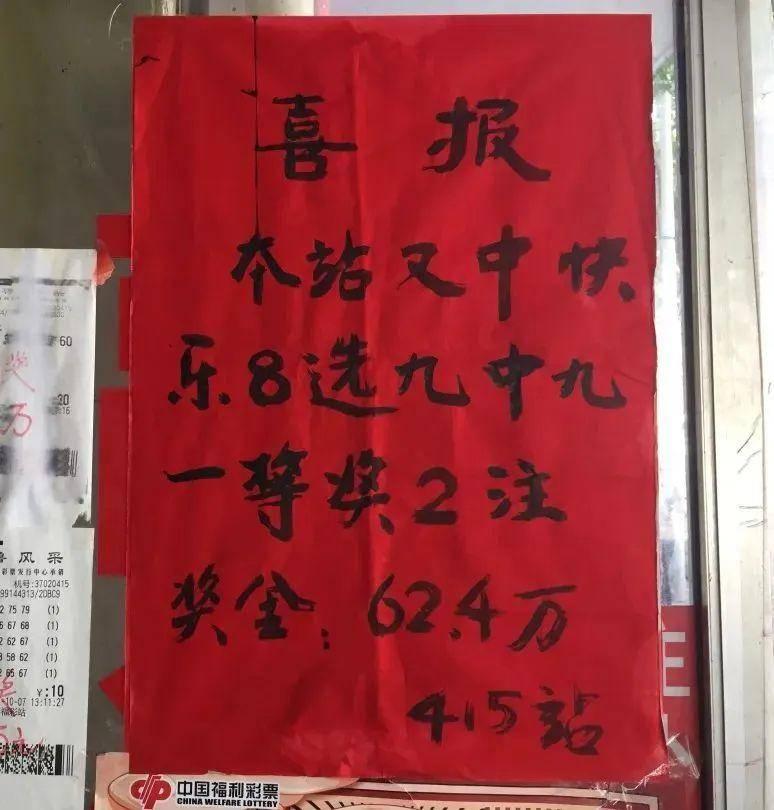 喜报
本站又中快
乐8选九中九
一等奖2注
奖金:62.4万
415站
60
万
风采
机号:37020415
99144313/2DBC9
2 75 79 (1)
5 67 68 (1)
2 62 67 (1)
3 58 62 (1)
2 65 67 (1)
¥:10
10-07 13:11:27
福彩站
中国福利彩票
CHINA WELFARE LOTTERY